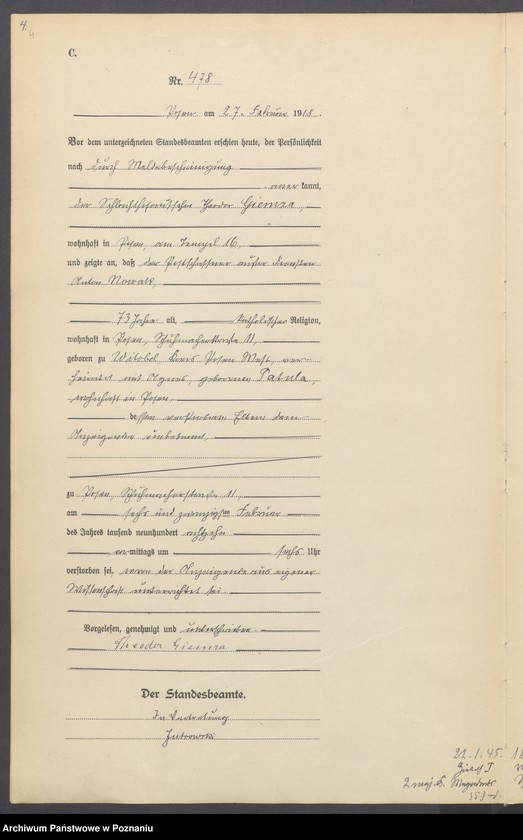 4.
C.
Nr. 478
Posen am 27. Februar 1918.
Vor dem unterzeichneten Standesbeamten erschien heute, der Persönlichkeit
nach durch Meldebescheinigung
aner kannt,
der Theodor Giemza,
wohnhaft in Posen, am Tempel 16,
und zeigte an, daß der Postschaffner außer Diensten
Anton Nowak,
73 Jahre alt, katholischer Religion,
wohnhaft in Posen, Schuhmacherstraße 11,
geboren zu Witobel Kreis Posen West, ver-
heiratet mit Agnes, geborenen Patula,
wohnhaft in Posen,
dessen verstorbene Eltern dem
Anzeigenden unbekannt,
zu Posen, Schuhmacherstraße 11,
am sechs und zwanzigsten Februar
des Jahres tausend neunhundert achtzehn
vor mittags um sechs Uhr
verstorben sei, wovon der Anzeigende aus eigener
Wissenschaft unterrichtet sei.
Vorgelesen, genehmigt und unterschrieben
Theodor Giemza
Der Standesbeamte.
In Vertretung
22.1.45.
Archiwum Państwowe w Poznaniu